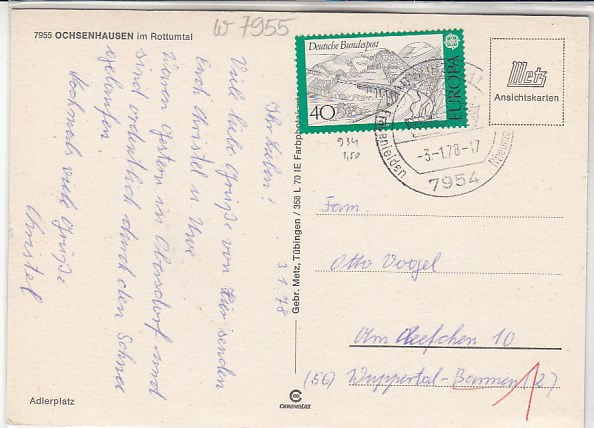 7955 OCHSENHAUSEN im Rottumtal
W 7955
3 1 78
Ihr Lieben!
Viel liebe Grüße von hier senden
euch Christel u. Uwe
Waren Gestern in Obersdorf und
sind ordentlich durch den Schnee
gelaufen.
Nochmals viele Grüße
Christel
Adlerplatz
Gebr. Metz, Tübingen / 358 L 70 IE Farbpho
CHROMOLUX
Deutsche Bundespost
40
EUROPA
934
1,50
-3.-1.78-17
7954
Metz
Ansichtskarten
Fam.
Otto Vogel
Am 10
(56) Wuppertal-Barmen (2)